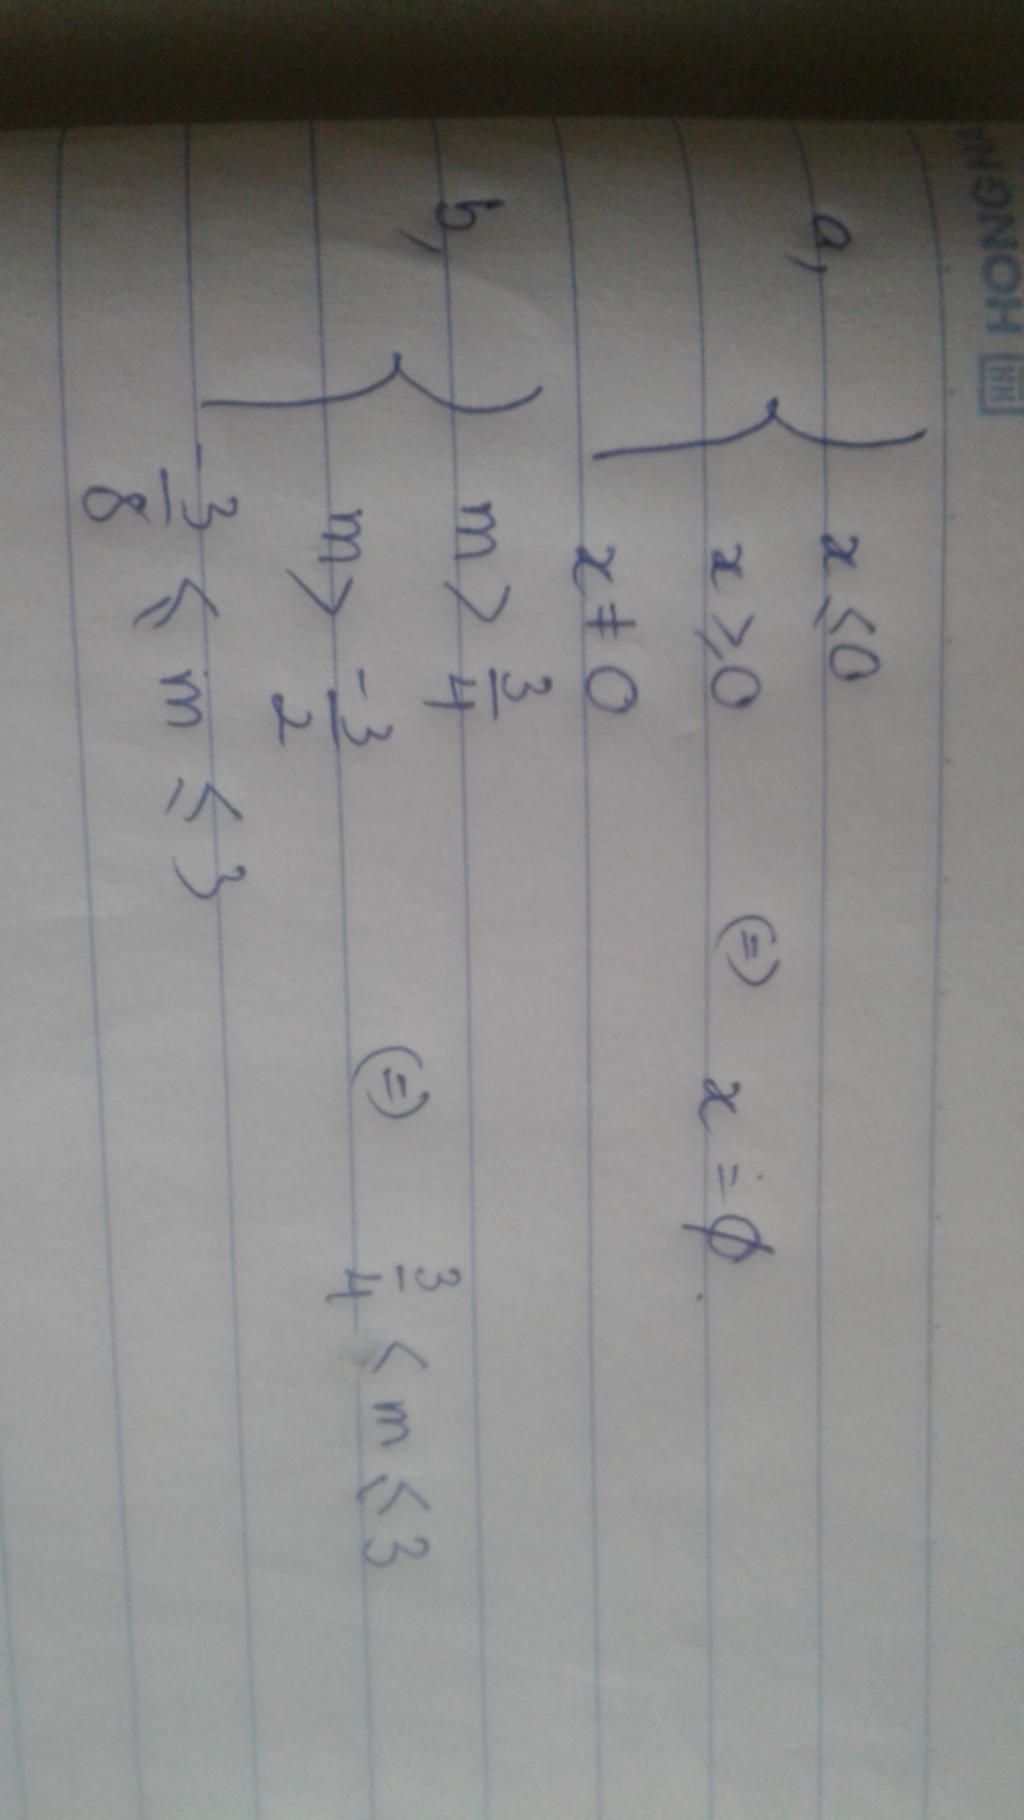 HONGH
a, { x ≤ 0
x ≥ 0 (=) x = ∅.
x ≠ 0
b, { m > 3/4
m > -3/2 (=) 3/4 < m ≤ 3
-3/8 ≤ m ≤ 3